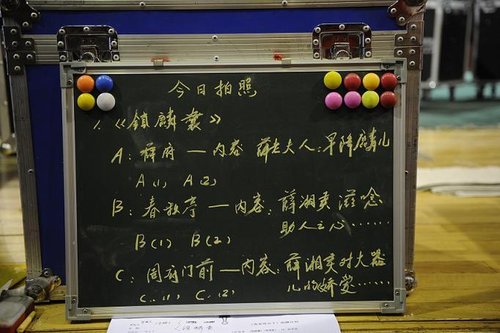 今日拍照
1.《锁麟囊》
A: 薛府—内容 薛老夫人:早降麟儿
A(1) A(2)
B: 春秋亭—内容: 薛湘灵滋念
助人之心……
B(1) B(2)
C: 周府门前—内容: 薛湘灵对大器
儿的娇爱……
C.(1) C.(2)